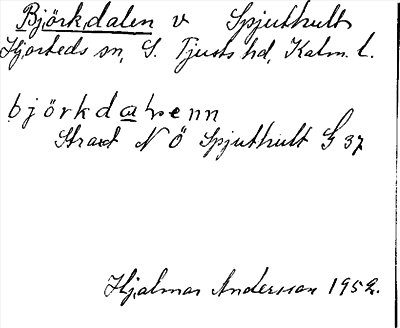 Björkdalen v Spjuthult
Hjorteds sn, S. Tjusts hd, Kalm. l.
björkdalenn
Strax NÖ Spjuthult G 37
Hjalmar Andersson 1952.